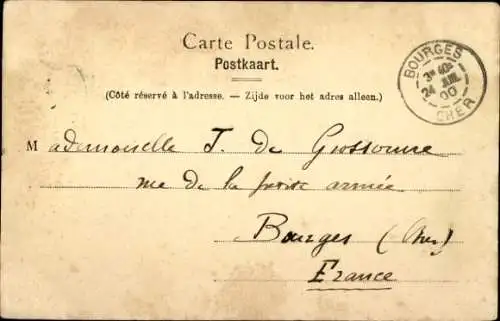 Carte Postale.
Postkaart.
(Côté réservé à l'adresse. — Zijde voor het adres alleen.)
BOURGES
3E 40S
24 JUIL
00
CHER
Mademoiselle T. de Grossouvre
rue de la armée
Bourges (Cher)
France